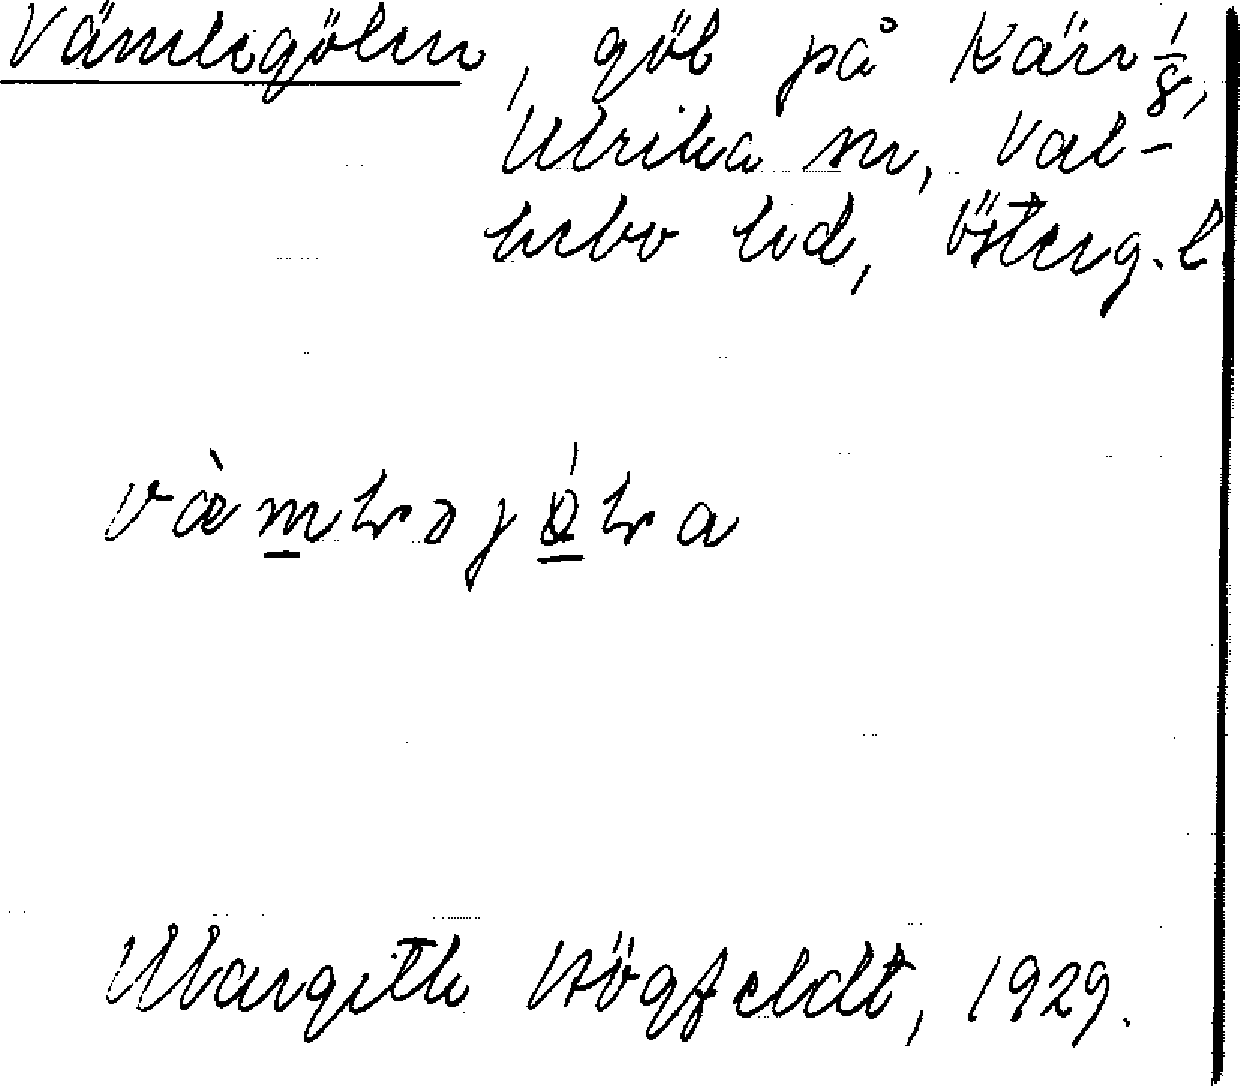 Vämlegölen, göl på Kärr 1/8,
Ulrika sn, Val-
kebo hd, Österg. l.
vàm̲ɫəjǿ̲ɫa
Margith Högfeldt, 1929.